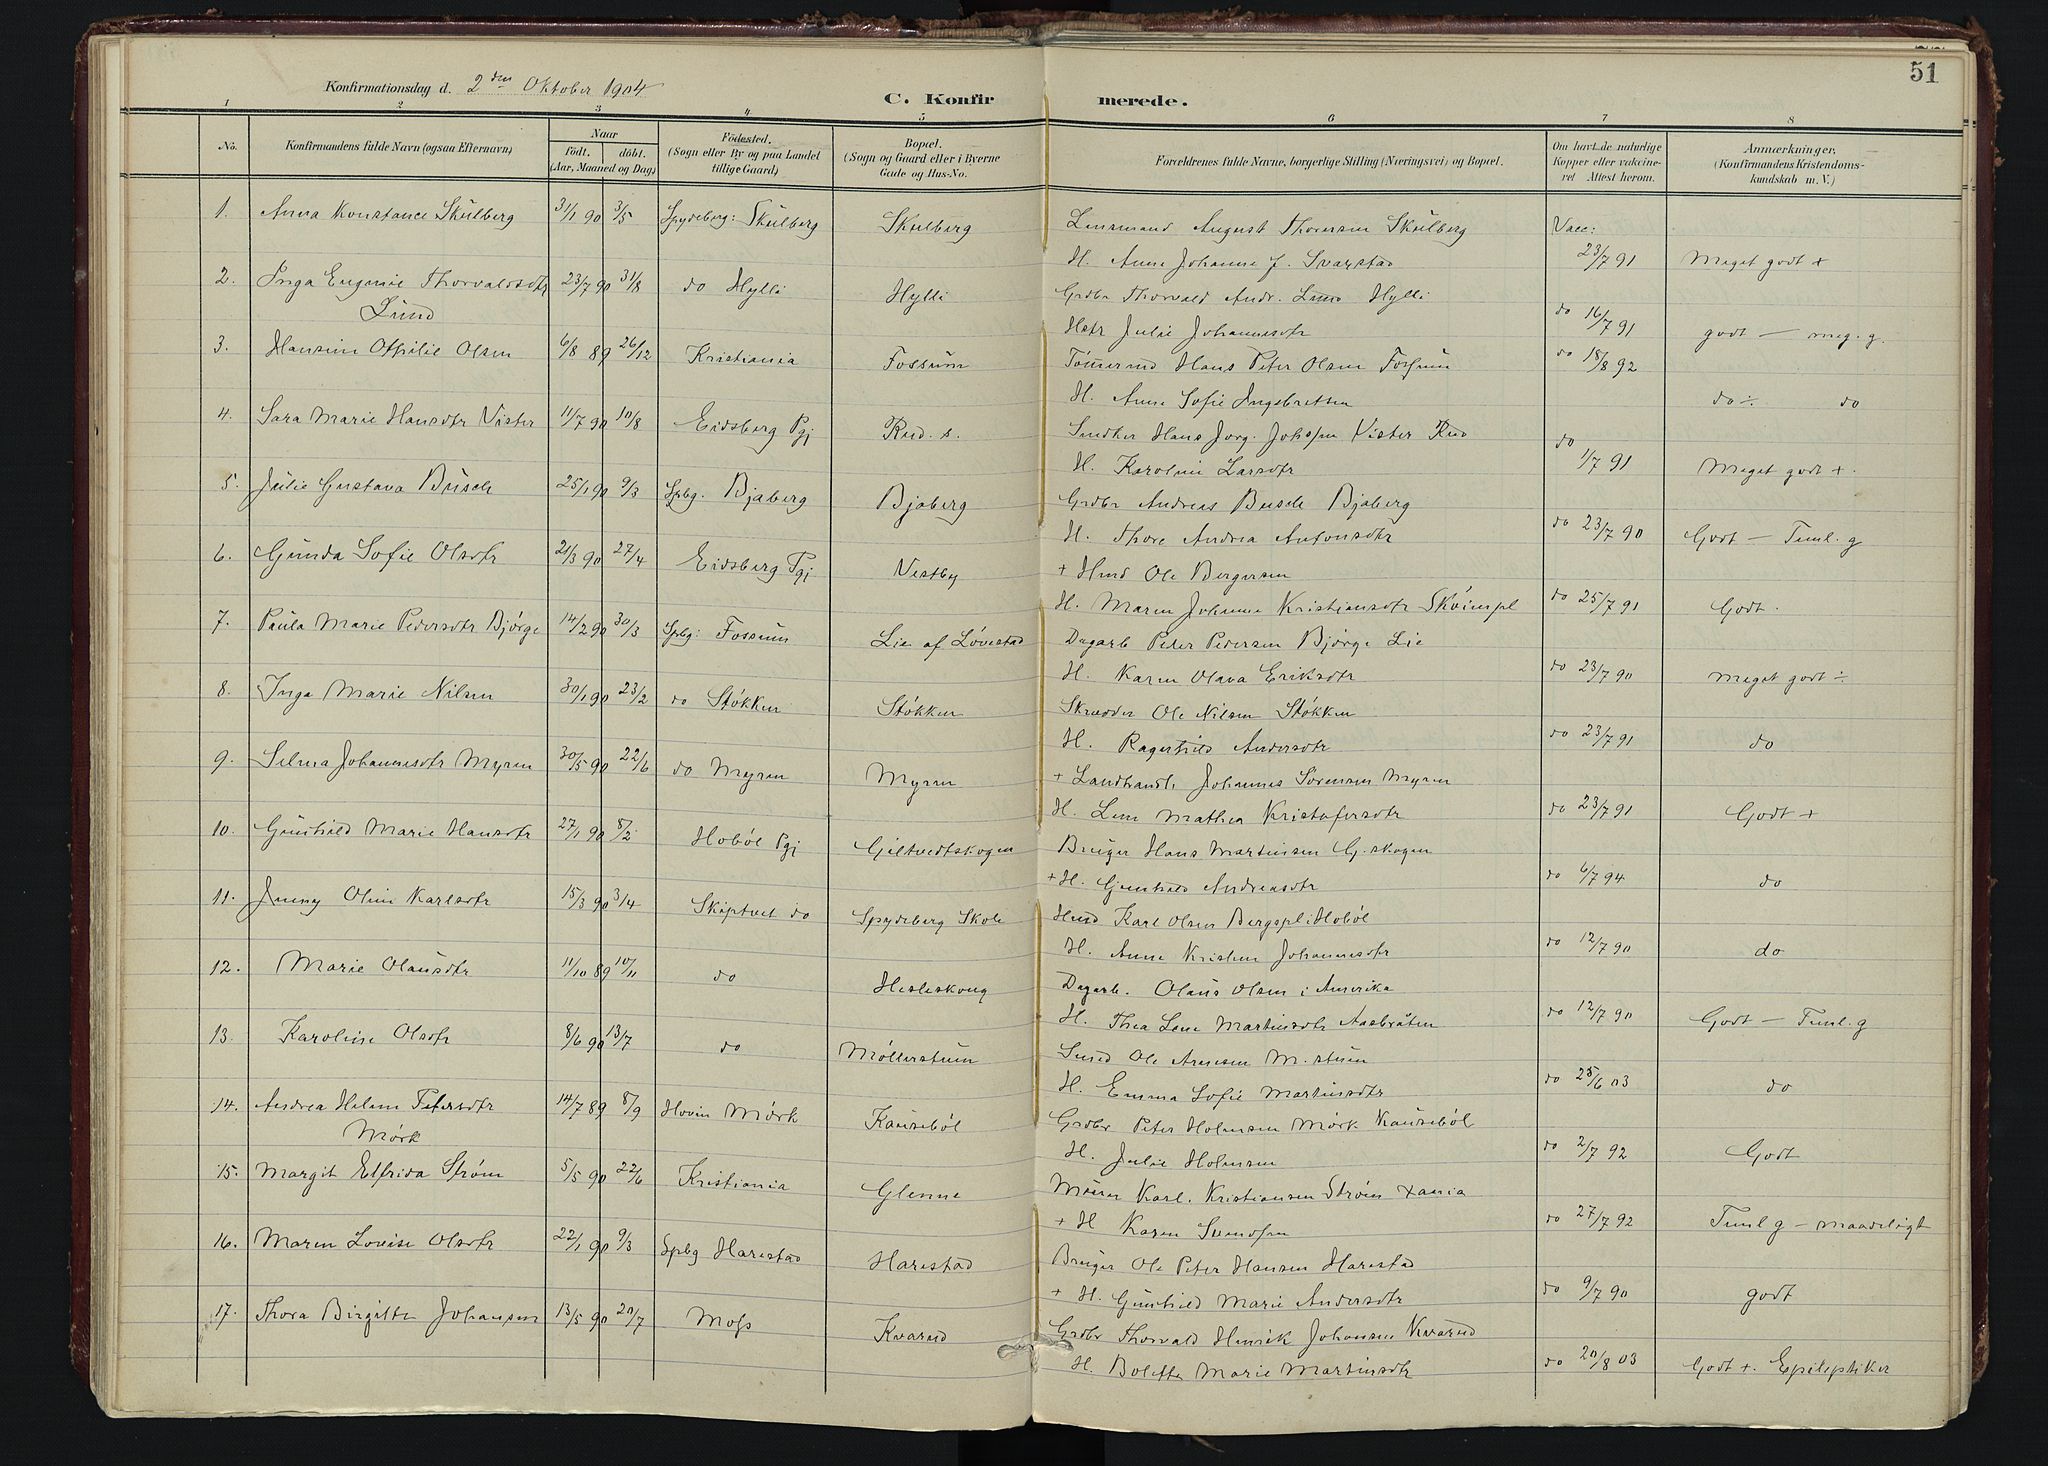 51
Konfirmationsdag d. 2den Oktober 1904
C. Konfirmerede.
1 2 3 4 5 6 7 8
No. Konfirmandens fulde Navn (ogsaa Efternavn) Naar født. døbt. (Aar, Maaned og Dag) Födested. (Sogn eller By og paa Landet tillige Gaard) Bopæl. (Sogn og Gaard eller i Byerne Gade og Hus-No. Forældrenes fulde Navne, borgerlige Stilling (Næringsvei) og Bopæl. Om havt de naturlige Kopper eller vakcineret Attest herom. Anmærkninger. (Konfirmandens Kristendomskundskab m. V.)
1. Anna Konstance Skulberg 31/1 90 3/5 Spydeberg: Skulberg Skulberg Lensmand August Thoresen Skulberg Vacc:
H. Anne Johanne J. Svarstad 23/7 91 Meget godt +
2. Inga Eugenie Thorvaldsdtr 23/7 90 31/8 do Hylli Hylli Grdbr Thorvald Andr. Lund Hylli
Lund Hstr Julie Johannesdtr do 16/7 91 godt — meg. g.
3. Hansine Othilie Olsen 6/8 89 26/12 Kristiania Fossum Tömmermd Hans Peter Olsen Fossum do 18/8 92
H. Anne Sofie Ingebretsen do ÷ do
4. Sara Marie Hansdtr Vister 11/7 90 10/8 Eidsberg Pgj Rud. s. Smdker Hans Jørg. Johssen Vister Rud
H. Karoline Larsdtr do 1/7 91 Meget godt +.
5. Julie Gustava Busch 25/1 90 9/3 Spbg. Bjaberg Bjaberg Grdbr Andreas Busch Bjaberg
H. Thore Andrea Antonsdtr do 23/7 90 Godt — Teml. g
6. Gunda Sofie Olsdtr 21/3 90 27/4 Eidsberg Pgj Vestby + Hmd Ole Bergersen
H. Maren Johanne Kristiansdtr Sköimpl do 25/7 91 Godt.
7. Paula Marie Pedersdtr Bjørge 14/2 90 30/3 Spbg: Fossum Lie af Løvestad Dagarb Peter Pedersen Bjørge Lie
H. Karen Olava Eriksdtr do 23/7 90 Meget godt ÷
8. Inga Marie Nilsen 30/1 90 23/2 do Støkken Støkken Skrædder Ole Nilsen Støkken
H. Ragnhild Andersdtr do 23/7 91 do
9. Selma Johannesdtr Myren 30/5 90 22/6 do Myren Myren + Landhandl. Johannes Sørensen Myren
H. Lene Mathea Kristofersdtr do 23/7 91 Godt +
10. Gunhild Marie Hansdtr 27/1 90 8/2 Hobøl Pgj Giltvedtskogen Bruger Hans Martinsen G. skogen
+ H. Gunhild Andreasdtr do 6/7 94 do
11. Jenny Oline Karlsdtr 15/3 90 3/4 Skiptvet do Spydeberg Skole Hmd Karl Olsen Bergspl i Hobøl
H. Anne Kristine Johannesdtr do 12/7 90 do
12. Marie Olausdtr 11/10 89 10/11 do Hesleskoug Dagarb. Olaus Olsen i Amerika
H. Thea Lene Martinsdtr Aasbråten do 12/7 90 Godt — Teml. g
13. Karoline Olsdtr 8/6 90 13/7 do Møllerstuen Smed Ole Arnesen M. stuen
H. Emma Sofie Martinsdtr do 25/6 03 do
14. Andrea Helene Petersdtr 14/7 89 8/9 Hovin Mørk Kausebøl Grdbr Peter Holmsen Mørk Kausebøl
Mørk H. Julie Holmsen do 2/7 92 Godt
15. Margit Elfrida Strøm 5/5 90 22/6 Kristiania Glenne Murer Karl. Kristiansen Strøm Xania
+ H Karen Svendsen do 27/7 92 Teml g — maadeligt
16. Maren Lovise Olsdtr 22/1 90 9/3 Spbg Harestad Harestad Bruger Ole Peter Hansen Harestad
+ H. Gunhild Marie Andersdtr do 9/7 90 godt
17. Thora Birgitte Johansen 13/5 90 20/7 Moss Kvarud Grdbr Thorvald Henrik Johansen Kvarud
H. Bolette Marie Martinsdtr do 20/8 03 Godt +. Epileptiker